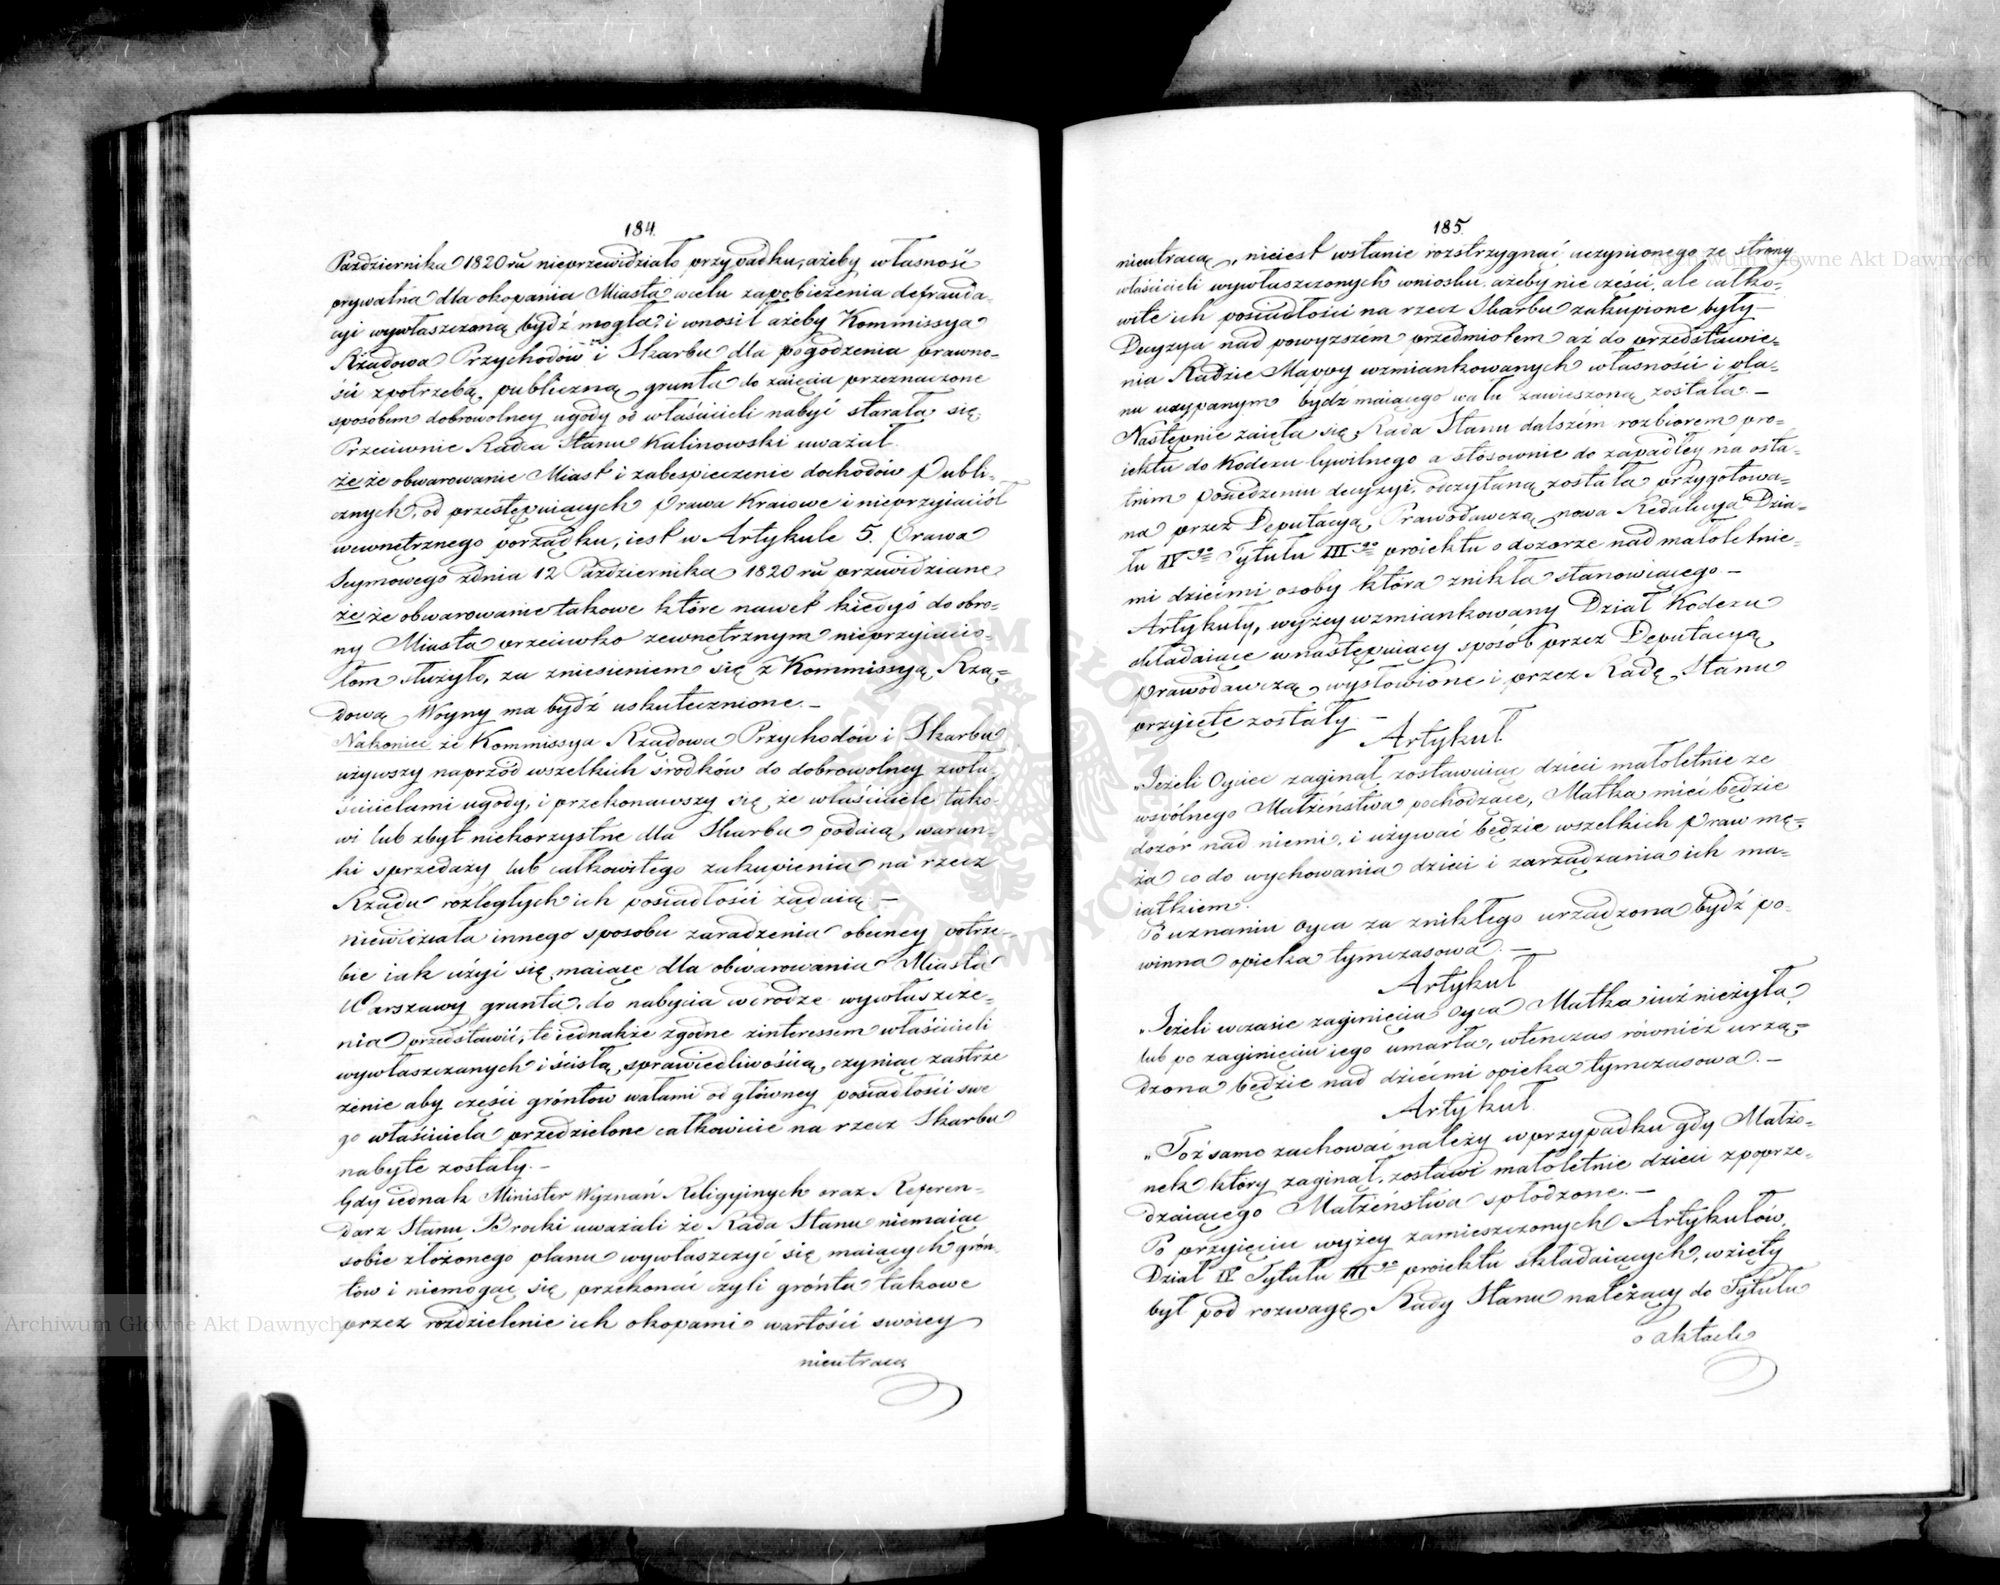 184.
Października 1820 ru nieprzewidziało przypadku, ażeby własność
prywatna dla okopania Miasta wcelu zapobieżenia defrauda-
cyi wywłaszczoną bydź mogła; i wnosił ażeby Kommissya
Rządowa Przychodów i Skarbu dla pogodzenia prawno-
ści zpotrzebą publiczną grunta do zaięcia przeznaczone
sposobem dobrowolney ugody od właścicieli nabyć starała się.
Przeciwnie Radca Stanu Kalinowski uważał.
że że obwarowanie Miast i zabespieczenie dochodów Publi-
cznych, od przestępuiących Prawa Kraiowe i nieprzyiaciół
wewnętrznego porządku, iest w Artykule 5. Prawa
Seymowego zdnia 12 Października 1820 ru przewidziane
że że obwarowanie takowe które nawet kiedyś do obro-
ny Miasta przeciwko zewnętrznym nieprzyiacio-
łom służyło, za zniesieniem się z Kommissyą Rzą-
dową Woyny ma bydź uskutecznione. –
Nakoniec że Kommissya Rządowa Przychodów i Skarbu
używszy naprzód wszelkich środków do dobrowolney zwła-
ścicielami ugody, i przekonawszy się, że właściciele tako-
wi lub zbyt niekorzystne dla Skarbu podaią warun-
ki sprzedaży lub całkowitego zakupienia na rzecz
Rządu rozległych ich posiadłości żądaią –
niewidziała innego sposobu zaradzenia obecney potrze-
bie iak użyć się maiące dla obwarowania Miasta
Warszawy grunta, do nabycia wdrodze wywłaszcze-
nia przedstawić, te iednakże zgodne zinteressem właścicieli
wywłaszczanych i ścisłą sprawiedliwością, czyniąc zastrze
żenie aby części gróntów wałami od główney posiadłości swe
go właściciela przedzielone całkowicie na rzecz Skarbu
nabyte zostały. –
Gdy iednak Minister Wyznań Religiynych oraz Referen-
darz Stanu Brocki uważali że Rada Stanu niemaiąc
sobie złożonego planu wywłaszczyć się maiących grón-
tów i niemogąc się przekonać czyli grónta takowe
przez rozdzielenie ich okopami wartości swoiey
nieutracą
185.
nieutracą, nieiest wstanie rozstrzygnąć uczynionego ze strony
właścicieli wywłaszczonych wniosku, ażeby nie części, ale całko-
wite ich posiadłości na rzecz Skarbu zakupione były –
Decyzya nad powyższém przedmiotem aż do przedstawie-
nia Radzie Mappy wzmiankowanych własności i pla-
nu usypanym bydź maiącego wału zawieszoną została. –
Następnie zaięła się Rada Stanu dalszém rozbiorem pro-
iektu do Kodexu Cywilnego a stosownie do zapadłey na osta-
tnim posiedzeniu decyzyi, odczytaną została przygotowa-
na przez Deputacyą Prawodawczą nowa Redakcya Dzia-
łu IVgo Tytułu IIIgo proiektu o dozorze nad małoletnie-
mi dziećmi osoby która znikła stanowiącego –
Artykuły, wyżey wzmiankowany Dział Kodexu
składaiące wnastępuiący sposób przez Deputacyą
Prawodawczą wysłowione i przez Radę Stanu
przyięte zostały. –
Artykuł
„Jeżeli Oyciec zaginął, zostawuiąc dzieci małoletnie ze
wspólnego Małżeństwa pochodzące, Matka mieć będzie
dozór nad niemi, i używać będzie wszelkich praw mę-
ża co do wychowania dzieci i zarządzania ich ma-
iątkiem.
Po uznaniu Oyca za znikłego urządzona bydź po-
winna opieka tymczasowa. –
Artykuł
„Jeżeli wczasie zaginięcia Oyca Matka iuż nieżyła,
lub po zaginięciu iego umarła, wtenczas również urzą-
dzona będzie nad dziećmi opieka tymczasowa. –
Artykuł.
„Toż samo zachować należy wprzypadku gdy Małżo-
nek który zaginął, zostawi małoletnie dzieci zpoprze-
dzaiącego Małżeństwa spłodzone. –
Po przyięciu wyżey zamieszczonych Artykułów,
Dział IV Tytułu IIIgo proiektu składaiących, wzięty
był pod rozwagę Rady Stanu należący do Tytułu
o aktach
Archiwum Główne Akt Dawnych
Archiwum Główne Akt Dawnych